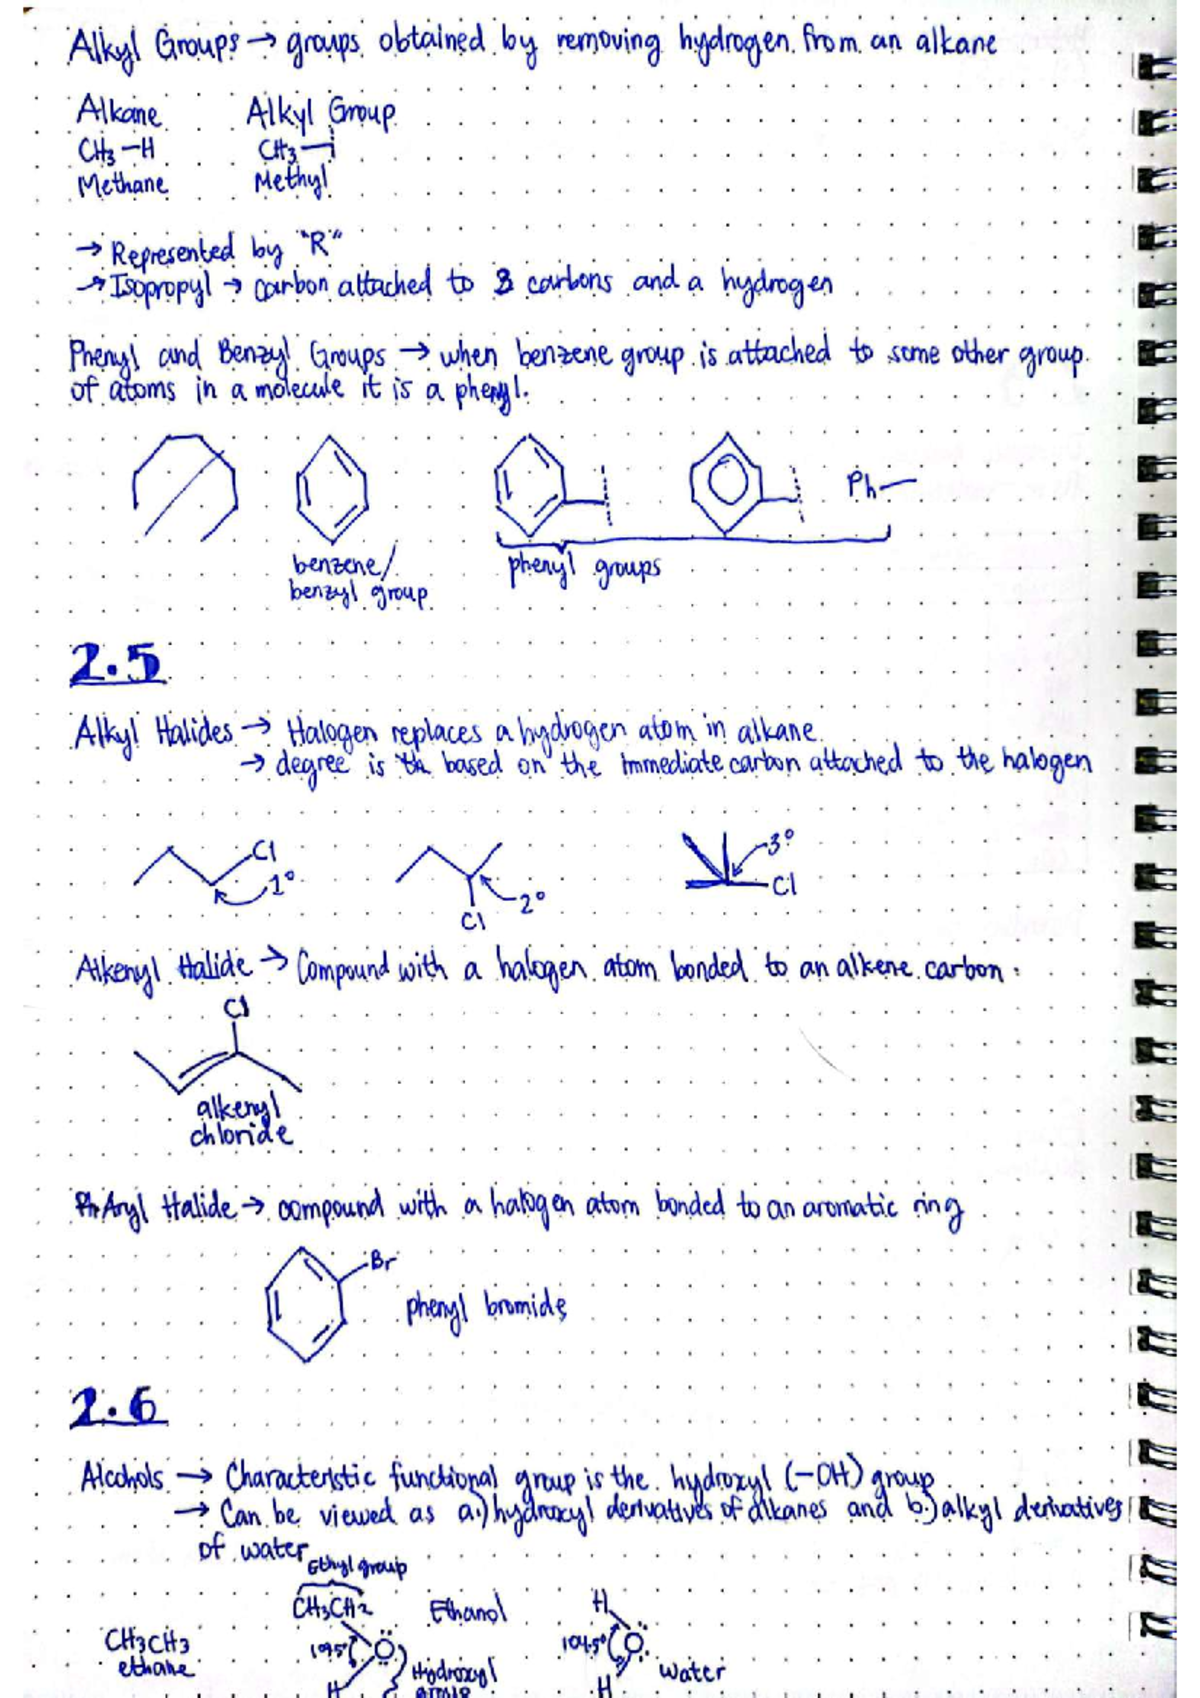 Alkyl Groups → groups obtained by removing hydrogen from an alkane
Alkane Alkyl Group
CH3-H CH3-
Methane Methyl
→ Represented by "R"
→ Isopropyl → carbon attached to 3 carbons and a hydrogen
Phenyl and Benzyl Groups → when benzene group is attached to some other group
of atoms in a molecule it is a phenyl.
Ph-
benzene/
benzyl group
phenyl groups
2.5
Alkyl Halides → Halogen replaces a hydrogen atom in alkane
→ degree is based on the immediate carbon attached to the halogen
Cl 1°
Cl 2°
3° Cl
Alkenyl Halide → Compound with a halogen atom bonded to an alkene carbon.
Cl
alkenyl
chloride
Aryl Halide → compound with a halogen atom bonded to an aromatic ring
Br
phenyl bromide
2.6
Alcohols → Characteristic functional group is the hydroxyl (-OH) group
→ Can be viewed as a.) hydroxyl derivatives of alkanes and b.) alkyl derivatives
of water
Ethyl group
CH3CH2 Ethanol H
CH3CH3 109.5° O 104.5° O
ethane Hydroxyl water
H group H